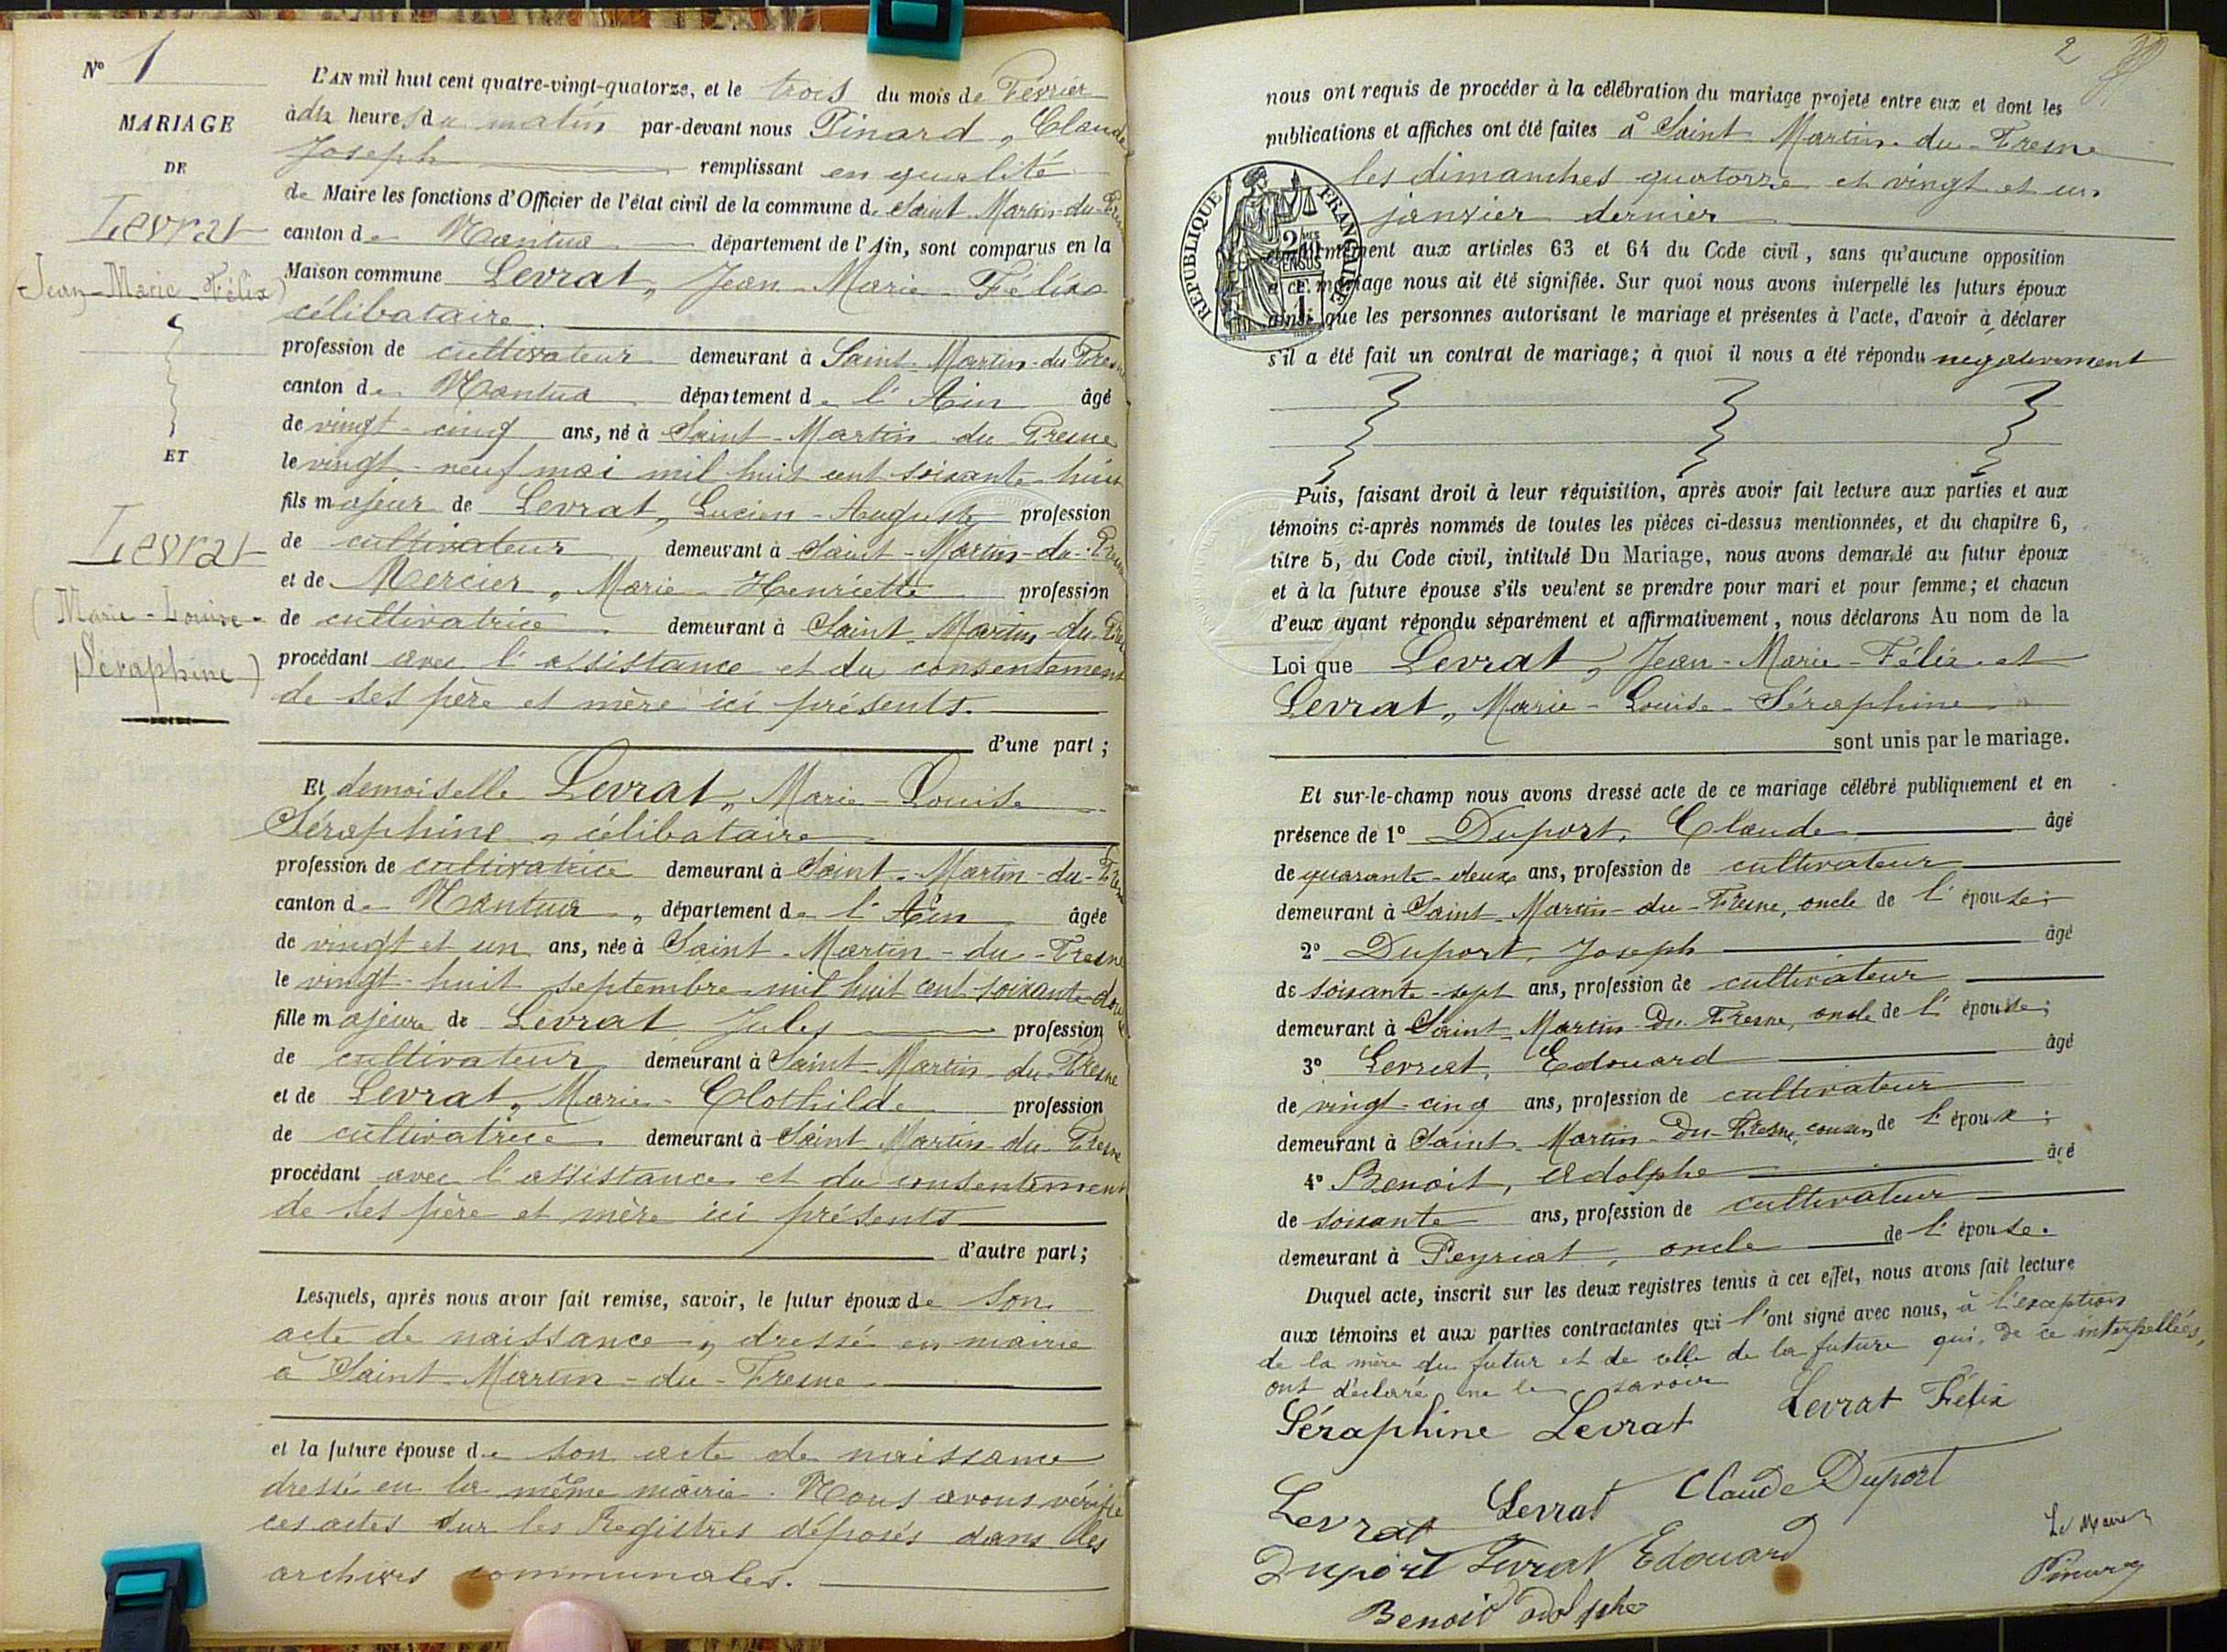 N° 1
MARIAGE
DE
Levrat
(Jean-Marie-Félix)
ET
Levrat
(Marie-Louise-
Séraphine)
L'AN mil huit cent quatre-vingt-quatorze, et le trois du mois de Février
à dix heures du matin par-devant nous Pinard, Claude
Joseph remplissant en qualité
de Maire les fonctions d'Officier de l'état civil de la commune de Saint-Martin-du-Fresne
canton de Nantua département de l'Ain, sont comparus en la
Maison commune Levrat, Jean-Marie-Félix
célibataire
profession de cultivateur demeurant à Saint-Martin-du-Fresne
canton de Nantua département de l'Ain âgé
de vingt-cinq ans, né à Saint-Martin-du-Fresne
le vingt-neuf mai mil huit cent soixante-huit
fils majeur de Levrat, Lucien-Auguste profession
de cultivateur demeurant à Saint-Martin-du-Fresne
et de Mercier, Marie-Henriette profession
de cultivatrice demeurant à Saint-Martin-du-Fresne
procédant avec l'assistance et du consentement
de ses père et mère ici présents.
d'une part;
Et demoiselle Levrat, Marie-Louise
Séraphine, célibataire
profession de cultivatrice demeurant à Saint-Martin-du-Fresne
canton de Nantua, département de l'Ain âgée
de vingt et un ans, née à Saint-Martin-du-Fresne
le vingt-huit septembre mil huit cent soixante-douze
fille majeure de Levrat Jules profession
de cultivateur demeurant à Saint-Martin-du-Fresne
et de Levrat, Marie-Clothilde profession
de cultivatrice demeurant à Saint-Martin-du-Fresne
procédant avec l'assistance et du consentement
de ses père et mère ici présents
d'autre part;
Lesquels, après nous avoir fait remise, savoir, le futur époux de son
acte de naissance, dressé en mairie
à Saint-Martin-du-Fresne
et la future épouse de son acte de naissance
dressé en la même mairie. Nous avons vérifié
ces actes sur les Registres déposés dans les
archives communales.
2
nous ont requis de procéder à la célébration du mariage projeté entre eux et dont les
publications et affiches ont été faites à Saint-Martin-du-Fresne
les dimanches quatorze et vingt et un
janvier dernier
RÉPUBLIQUE FRANÇAISE
conformément aux articles 63 et 64 du Code civil, sans qu'aucune opposition
à ce mariage nous ait été signifiée. Sur quoi nous avons interpellé les futurs époux
ainsi que les personnes autorisant le mariage et présentes à l'acte, d'avoir à déclarer
s'il a été fait un contrat de mariage; à quoi il nous a été répondu négativement
Puis, faisant droit à leur réquisition, après avoir fait lecture aux parties et aux
témoins ci-après nommés de toutes les pièces ci-dessus mentionnées, et du chapitre 6,
titre 5, du Code civil, intitulé Du Mariage, nous avons demandé au futur époux
et à la future épouse s'ils veulent se prendre pour mari et pour femme; et chacun
d'eux ayant répondu séparément et affirmativement, nous déclarons Au nom de la
Loi que Levrat, Jean-Marie-Félix et
Levrat, Marie-Louise-Séraphine
sont unis par le mariage.
Et sur-le-champ nous avons dressé acte de ce mariage célébré publiquement et en
présence de 1° Duport, Claude âgé
de quarante-deux ans, profession de cultivateur
demeurant à Saint-Martin-du-Fresne, oncle de l'épouse;
2° Duport, Joseph âgé
de soixante-sept ans, profession de cultivateur
demeurant à Saint-Martin-du-Fresne, oncle de l'épouse;
3° Levrat, Edouard âgé
de vingt-cinq ans, profession de cultivateur
demeurant à Saint-Martin-du-Fresne, cousin de l'époux;
4° Benoit, Adolphe âgé
de soixante ans, profession de cultivateur
demeurant à Peyriat, oncle de l'épouse.
Duquel acte, inscrit sur les deux registres tenus à cet effet, nous avons fait lecture
aux témoins et aux parties contractantes qui l'ont signé avec nous, à l'exception
de la mère du futur et de celle de la future qui, de ce interpellées,
ont déclaré ne le savoir
Séraphine Levrat Levrat Félix
Levrat Levrat Claude Duport
Duport Levrat Edouard
Le Maire
Benoit Adolphe
Pinard